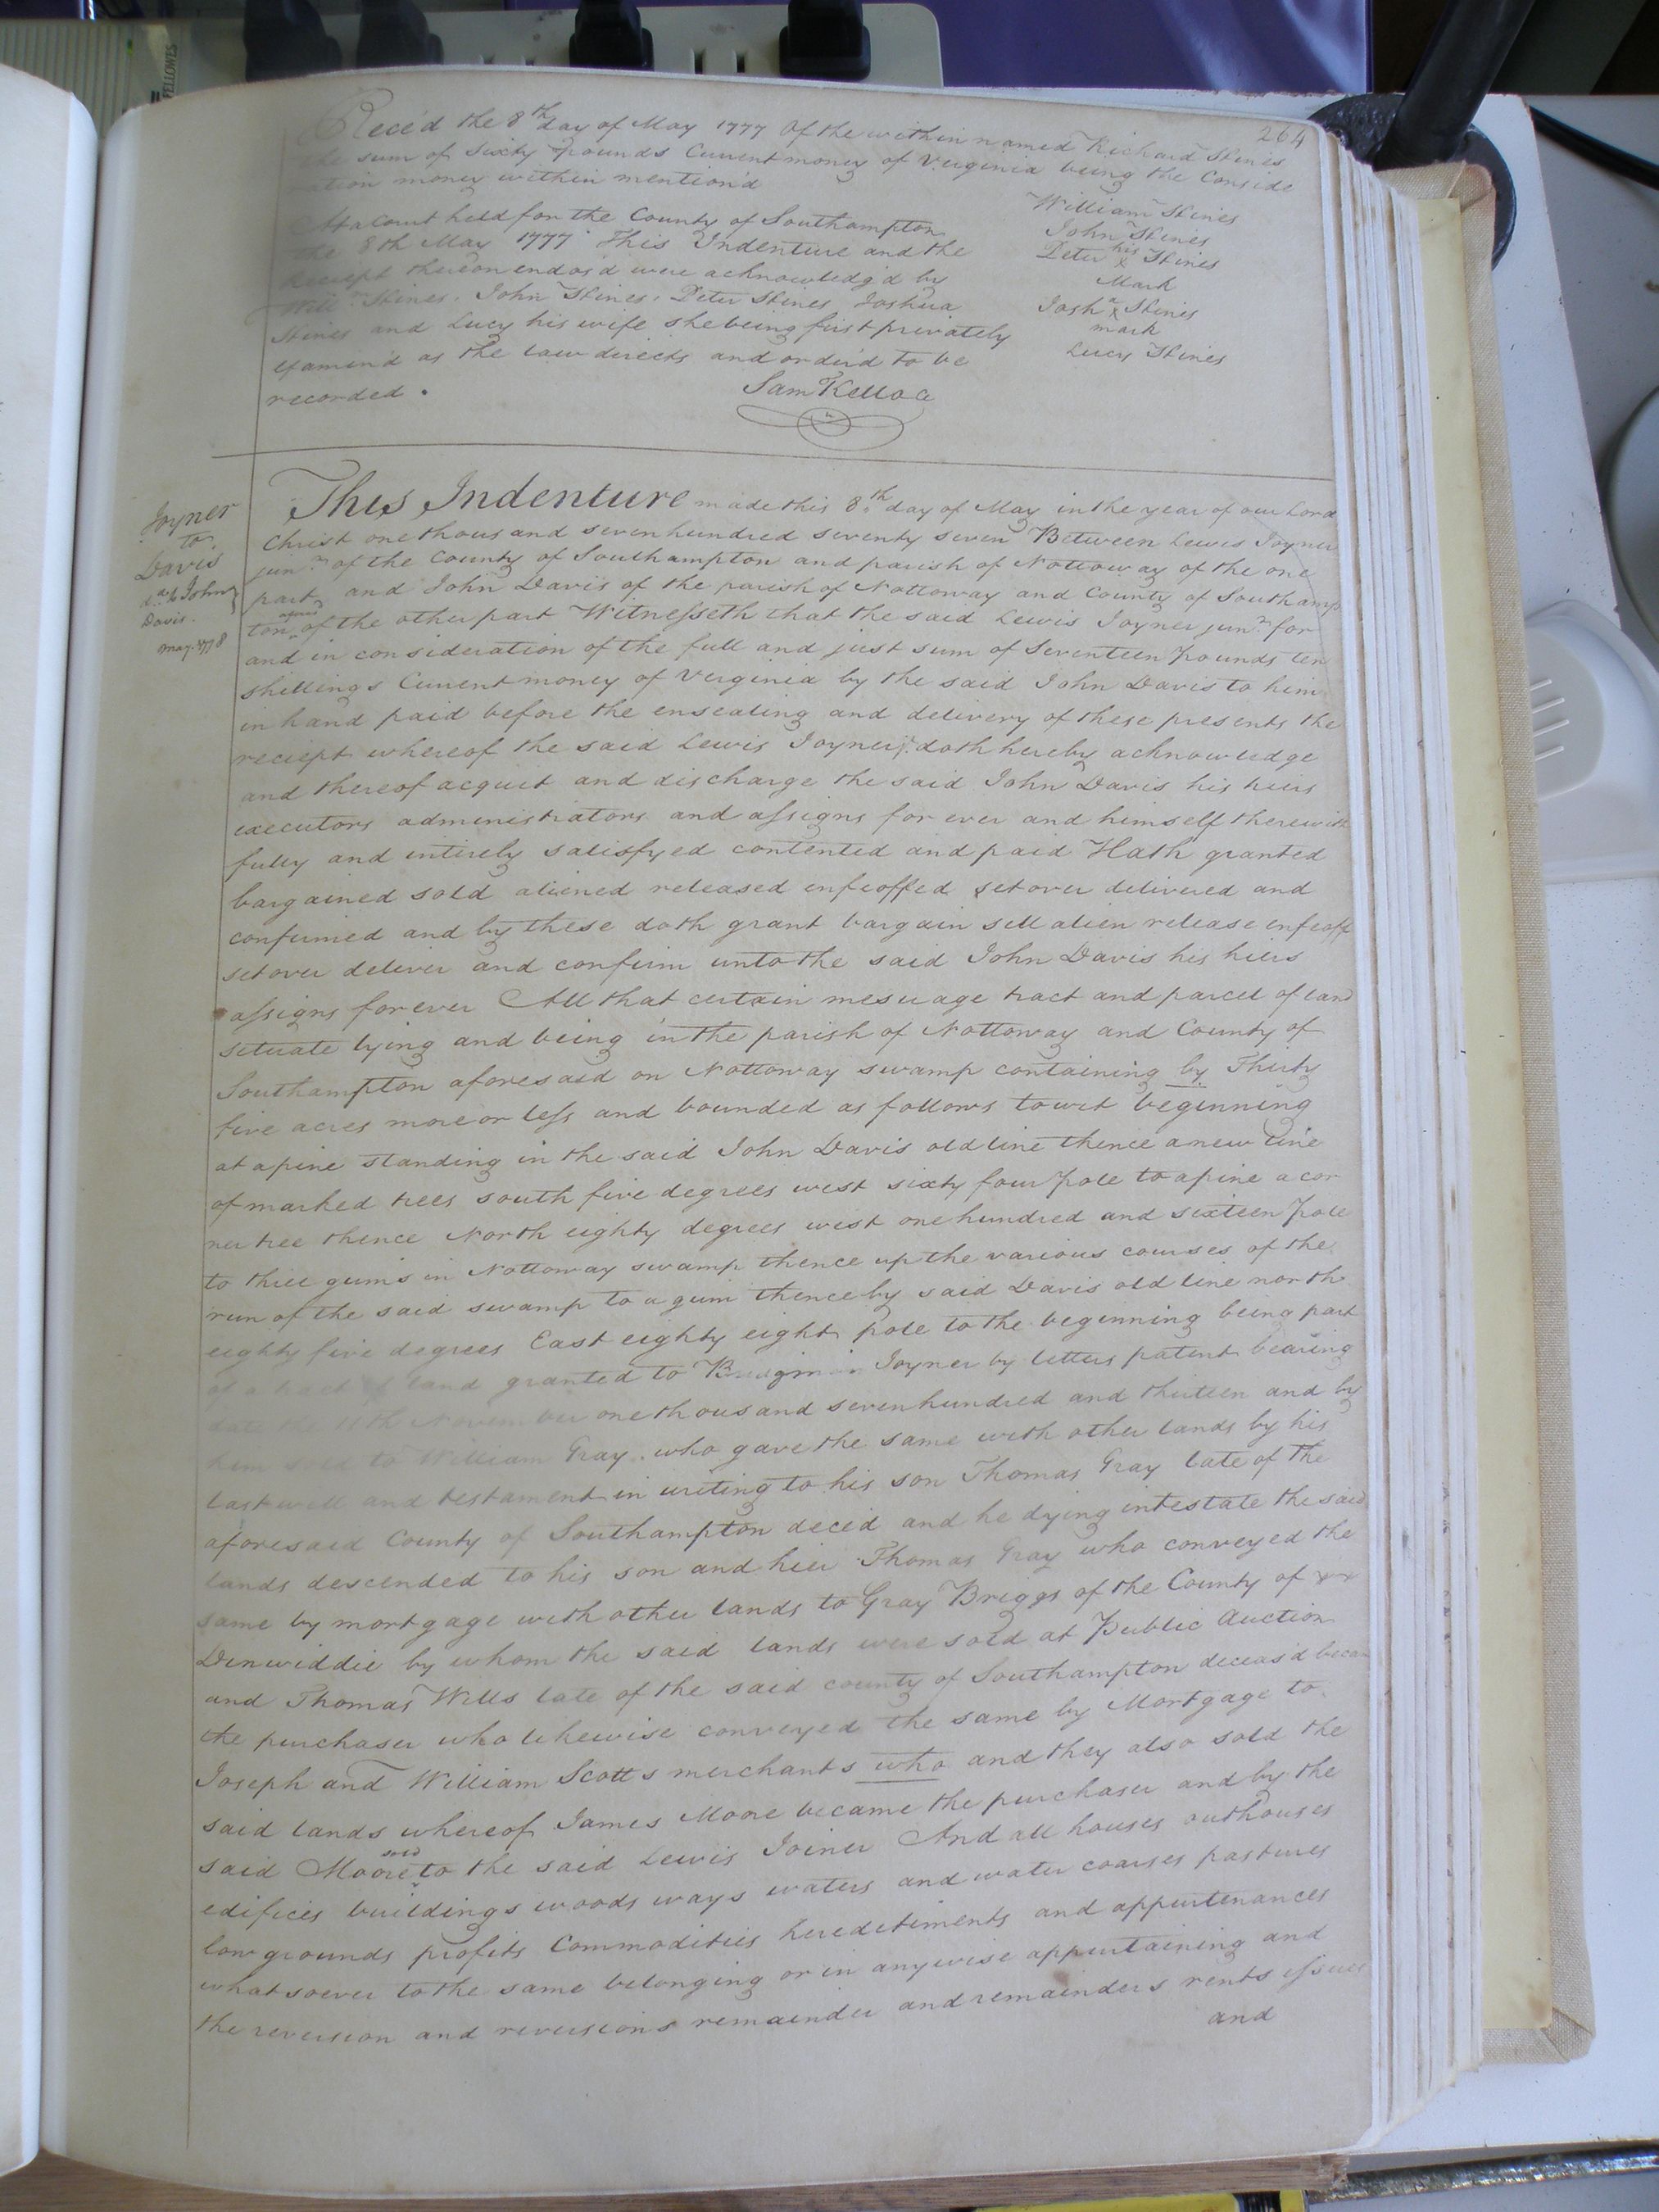 264
Rece'd the 8th day of May 1777 Of the within named Richard Stines
the sum of Sixty Pounds Current money of Verginia being the Conside
ation money within mention'd
William Stines
John Stines
Peter his x Stines
Mark
Josha x Stines
mark
Lucy Stines
At a Court held for the County of Southampton
the 8th May 1777 This Indenture and the
Receipt thereon endors'd were acknowledg'd by
Willm Stines, John Stines, Peter Stines, Joshua
Stines and Lucy his wife she being first privately
examin'd as the law directs and order'd to be
recorded.
Sam Kello C
Joyner
to
Davis
John
Davis.
May. 1778
This Indenture made this 8th day of May in the year of our Lord
Christ one thousand seven hundred seventy seven Between Lewis Joyner
junr of the County of Southampton and parish of Nottoway of the one
part and John Davis of the parish of Nottoway and County of Southamp
ton afores'd of the other part Witnesseth that the said Lewis Joyner junr for
and in consideration of the full and just sum of Seventeen Pounds ten
shillings Current money of Verginia by the said John Davis to him
in hand paid before the ensealing and delivery of these presents the
reciept whereof the said Lewis Joyner jr doth hereby acknowledge
and thereof acquit and discharge the said John Davis his heirs
executors administrators and assigns for ever and himself therewith
fully and intirely satisfyed contented and paid Hath granted
bargained sold aliened released enfeoffed set over delivered and
confirmed and by these doth grant bargain sell alien release enfeoff
set over deliver and confirm unto the said John Davis his hiers
assigns for ever All that certain mesuage tract and parcel of land
situate lying and being in the parish of Nottoway and County of
Southampton aforesaid on Nottoway swamp containing by Thirty
five acres more or less and bounded as follows towit beginning
at a pine standing in the said John Davis old line thence a new line
of marked trees south five degrees west sixty four Pole to a pine a cor
ner tree thence North eighty degrees west one hundred and sixteen Pole
to three gums in Nottoway swamp thence up the various courses of the
run of the said swamp to a gum thence by said Davis old line north
eighty five degrees East eighty eight pole to the beginning being part
of a tract of land granted to Joyner by letters patent bearing
date the November one thousand seven hundred and thirteen and by
him sold to William Gray who gave the same with other lands by his
last will and testament in writing to his son Thomas Gray late of the
aforesaid County of Southampton deced and he dying intestate the said
lands descended to his son and hier Thomas Gray who conveyed the
same by mortgage with other lands to Gray Briggs of the County of
Dinwiddie by whom the said lands were sold at Public Auction
and Thomas Wills late of the said county of Southampton deceas'd becam
the purchaser who likewise conveyed the same by Mortgage to
Joseph and William Scotts merchants who and they also sold the
said lands whereof James Moore became the purchaser and by the
said Moore sold to the said Lewis Joiner And all houses outhouses
edifices buildings woods ways waters and water courses pastures
low grounds profits Commodities heredetiments and appurtenances
whatsoever to the same belonging or in anywise appurtaining and
the reversion and reversions remainder and remainders rents issues
and
FELLOWES